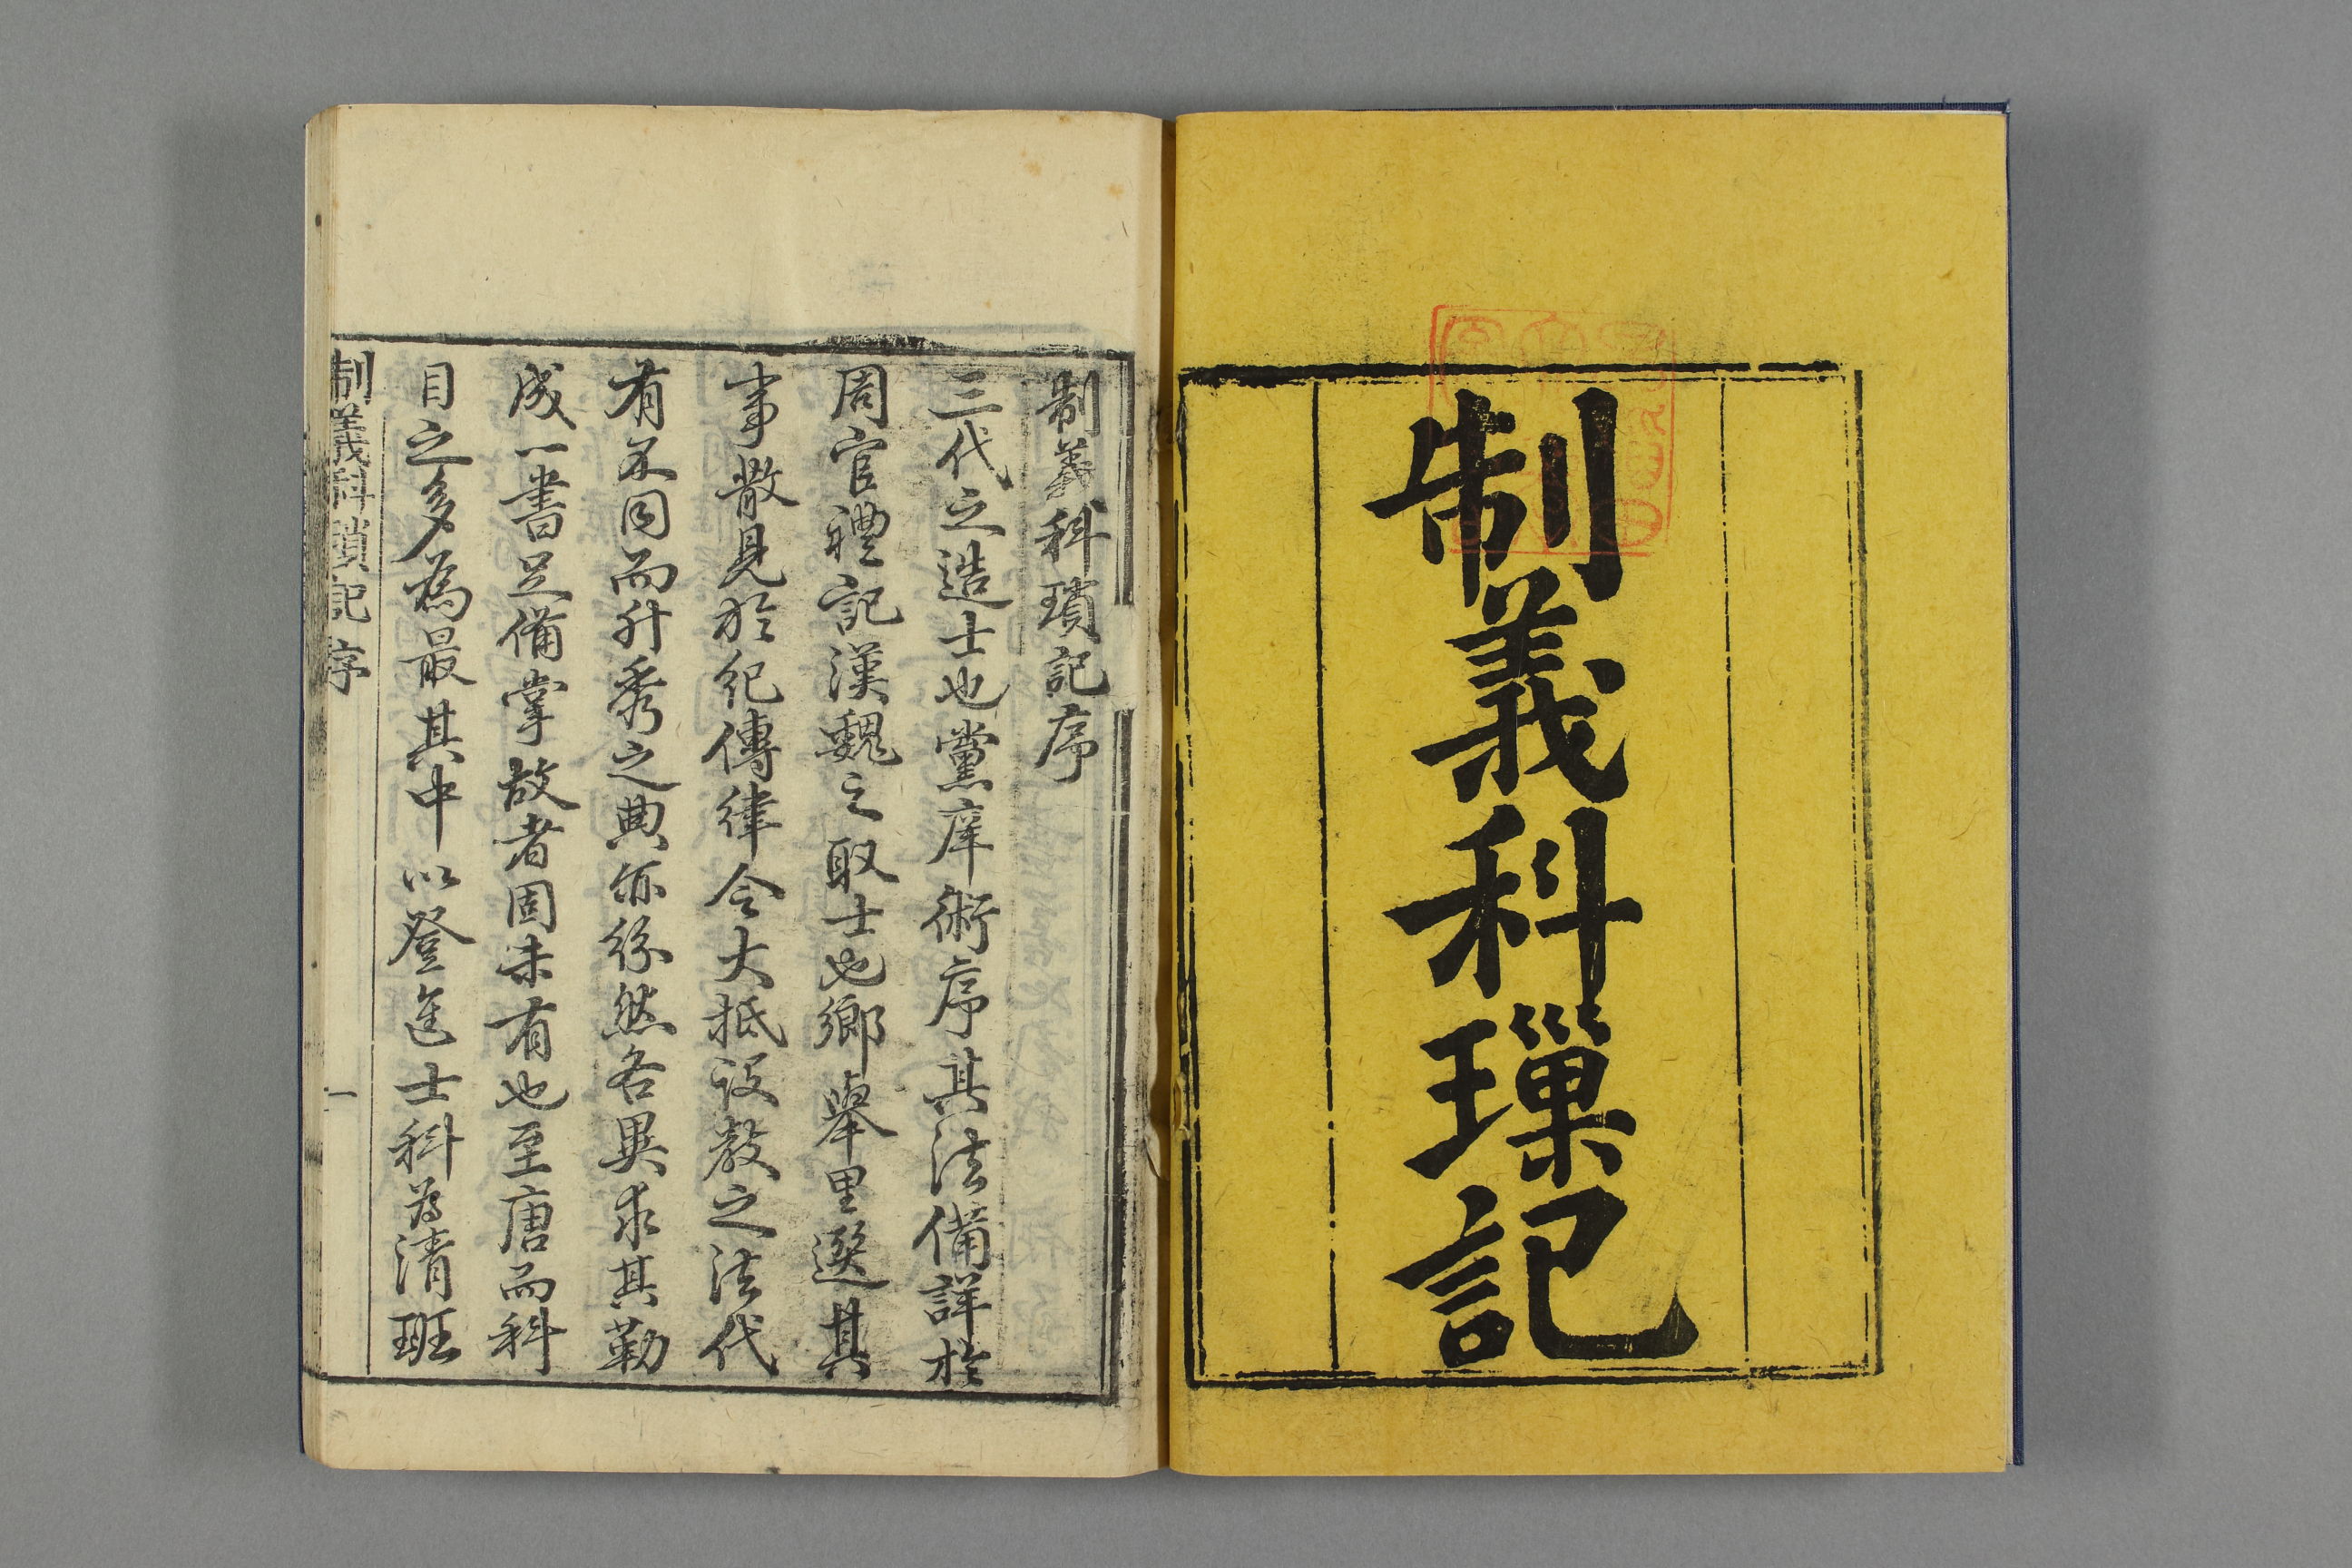 制義科璅記
制義科瑣記序
三代之造士也黨庠術序其法備詳於
周官禮記漢魏之取士也鄉舉里選其
事散見於紀傳律令大抵設教之法代
有不同而升秀之典亦紛然各異求其勒
成一書足備掌故者固未有也至唐而科
目之多為最其中以登進士科為清班
制義科瑣記序
一